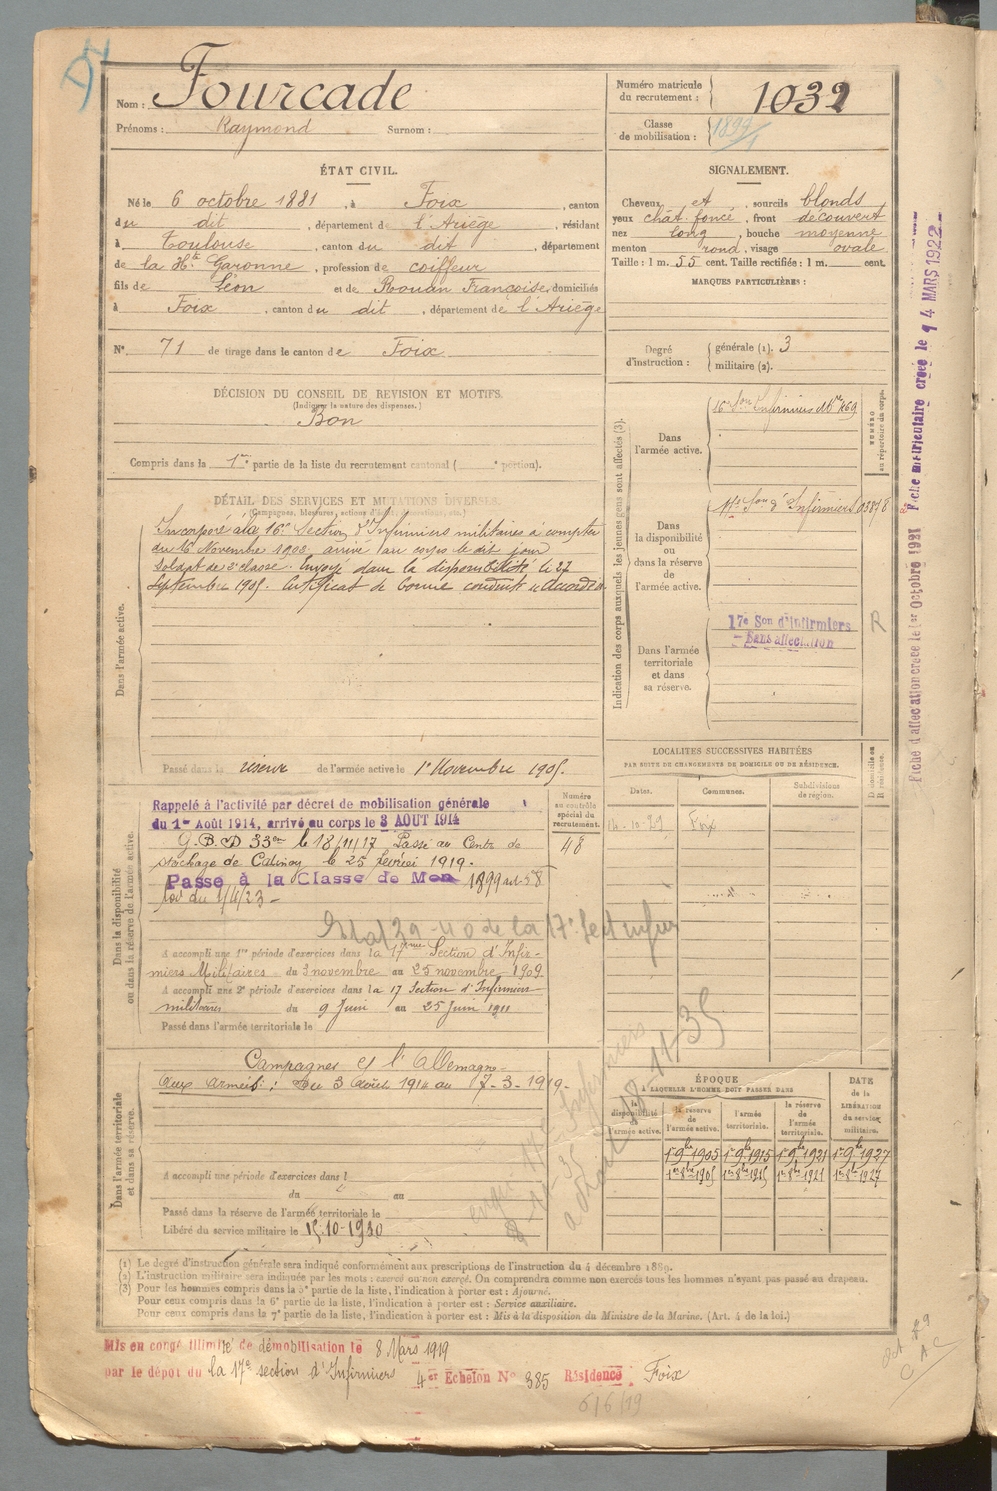 Nom : Fourcade
Prénoms : Raymond Surnom :
Numéro matricule du recrutement : 1032
Classe de mobilisation : 1899
ÉTAT CIVIL.
Né le 6 octobre 1881, à Foix, canton
du dit, département de l'Ariège, résidant
à Toulouse, canton du dit, département
de la Hte Garonne, profession de coiffeur
fils de Léon et de Rouan Françoise, domiciliés
à Foix, canton du dit, département de l'Ariège
N° 71 de tirage dans le canton de Foix
SIGNALEMENT.
Cheveux et, sourcils blonds
yeux chât. foncé, front découvert
nez long, bouche moyenne
menton rond, visage ovale
Taille : 1 m. 55 cent. Taille rectifiée : 1 m. cent.
MARQUES PARTICULIÈRES :
Degré d'instruction : générale (1). 3
militaire (2).
DÉCISION DU CONSEIL DE REVISION ET MOTIFS.
(Indiquer la nature des dispenses.)
Bon
Compris dans la 1re partie de la liste du recrutement cantonal ( e portion).
DÉTAIL DES SERVICES ET MUTATIONS DIVERSES.
(Campagnes, blessures, actions d'éclat, décorations, etc.)
Dans l'armée active.
Incorporé à la 16e Section d'Infirmiers militaires à compter
du 16 Novembre 1903, arrivé au corps le dit jour
Soldat de 2e classe. Envoyé dans la disponibilité le 27
Septembre 1905. Certificat de bonne conduite "accordé".
Passé dans la réserve de l'armée active le 1er Novembre 1905.
Indication des corps auxquels les jeunes gens sont affectés (3).
NUMÉRO au répertoire du corps.
Dans l'armée active.
16e Son Infirmiers
Dans la disponibilité ou dans la réserve de l'armée active.
17e Son d'Infirmiers
Dans l'armée territoriale et dans sa réserve.
17e Son d'Infirmiers
- Sans affectation
R
LOCALITÉS SUCCESSIVES HABITÉES
PAR SUITE DE CHANGEMENTS DE DOMICILE OU DE RÉSIDENCE.
Dates. Communes. Subdivisions de région. D domicile ou R résidence.
14-10-29 Foix
Dans la disponibilité ou dans la réserve de l'armée active.
Numéro au contrôle spécial du recrutement.
48
Rappelé à l'activité par décret de mobilisation générale
du 1er Août 1914, arrivé au corps le 3 AOUT 1914
G.B.D 33e le 18/11/17 Passé au Centre de
stockage de le 25 février 1919.
Passé à la Classe de Mon 1899 art 58
loi du 1/4/23 -
39-40 de la 17e Sect infir
A accompli une 1re période d'exercices dans la 17ème Section d'Infir-
miers Militaires du 3 novembre au 25 novembre 1909
A accompli une 2e période d'exercices dans la 17 Section d'Infirmiers
militaires du 9 Juin au 25 Juin 1911
Passé dans l'armée territoriale le
Dans l'armée territoriale et dans sa réserve.
Campagnes et l'Allemagne
Aux armées : Du 3 Août 1914 au 7-3-1919.
A accompli une période d'exercices dans l
du au
Passé dans la réserve de l'armée territoriale le
Libéré du service militaire le 15-10-1930
ÉPOQUE
A LAQUELLE L'HOMME DOIT PASSER DANS
la disponibilité de l'armée active. la réserve de l'armée active. l'armée territoriale. la réserve de l'armée territoriale.
DATE de la LIBÉRATION du service militaire.
1er 9bre 1905 1er 9bre 1915 1er 9bre 1921 1er 9bre 1927
1er 8bre 1905 1er 8bre 1915 1er 8bre 1921 1er 8bre 1927
(1) Le degré d'instruction générale sera indiqué conformément aux prescriptions de l'instruction du 4 décembre 1889.
(2) L'instruction militaire sera indiquée par les mots : exercé ou non exercé. On comprendra comme non exercés tous les hommes n'ayant pas passé au drapeau.
(3) Pour les hommes compris dans la 5e partie de la liste, l'indication à porter est : Ajourné.
Pour ceux compris dans la 6e partie de la liste, l'indication à porter est : Service auxiliaire.
Pour ceux compris dans la 7e partie de la liste, l'indication à porter est : Mis à la disposition du Ministre de la Marine. (Art. 4 de la loi.)
Mis en congé illimité de démobilisation le 8 Mars 1919
par le dépôt du la 17e section d'Infirmiers 4er Echelon N° 385 Résidence Foix
6/6/19
Fiche d'affectation créée le 1er Octobre 1921 Fiche matriculaire créée le 14 MARS 1922